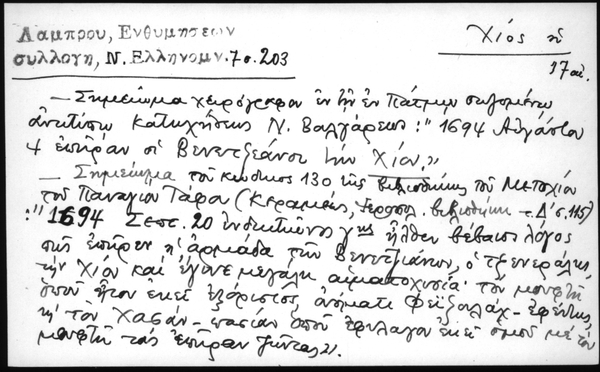 Λαμπρου, Ενθυμησεων
συλλογη, Ν. Ελληνομν. 7 σ. 203
Χίος
17 αι.
— Σημείωμα χειρόγραφον ἐν τῇ ἐν Πάτμῳ σωζομένῃ
Κατηχήσεως Ν. Βουλγάρεως: "1694 Αὐγούστου
4 ἐπῆραν οἱ Βενετζιάνοι τὴν Χίον."
— Σημείωμα τοῦ κώδικος 130 τῆς βιβλιοθήκης τοῦ Μετοχίου
τοῦ Παναγίου Τάφου (Κεραμεύς, Ἱεροσολ. βιβλιοθήκη τ. Δ' σ. 115)
: "1694 Σεπ. 20 ἰνδικτιῶνος γης ἦλθεν βέβαιος λόγος
πῶς ἐπῆρεν ἡ ἀρμάδα τῶν Βενετζιάνων, ὁ τζενεράλης
τὴν Χίον καὶ ἔγινε μεγάλη αἱματοχυσία τὸν μουφτῆ
ὁποῦ ἦτον ἐκεῖ ἐξόριστος, ὀνόματι Φεϊζουλάχ-ἐφέντης
κὶ τὸν Χασάν-πασίαν ὁποῦ ἐφύλαγον ἐκεῖ ὁμοῦ μὲ τὸν
μουφτῆ τοὺς ἐπῆραν ζῶντας".